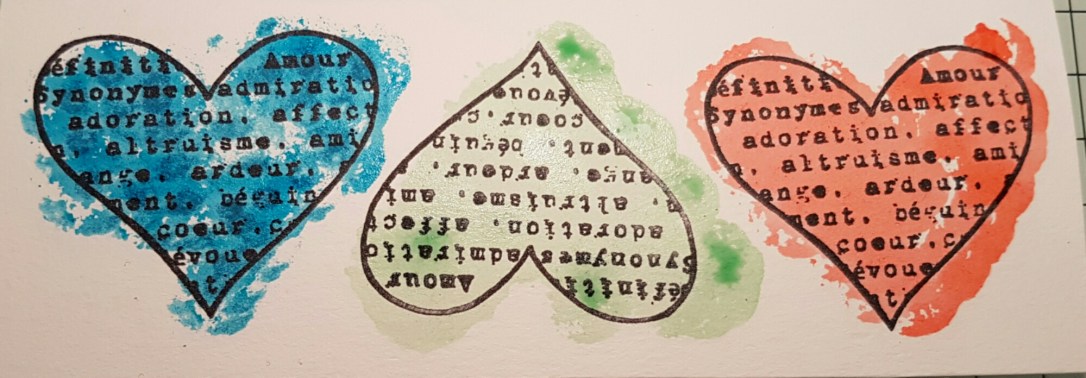 éfiniti Amour
Synonymes admiratio
adoration, affect
n, altruisme, ami
ange, ardeur,
ment, béguin
coeur, c
évoue
t
éfiniti Amour
Synonymes admiratio
adoration, affect
n, altruisme, ami
ange, ardeur,
ment, béguin
coeur, c
évoue
t
éfiniti Amour
Synonymes admiratio
adoration, affect
n, altruisme, ami
ange, ardeur,
ment, béguin
coeur, c
évoue
t